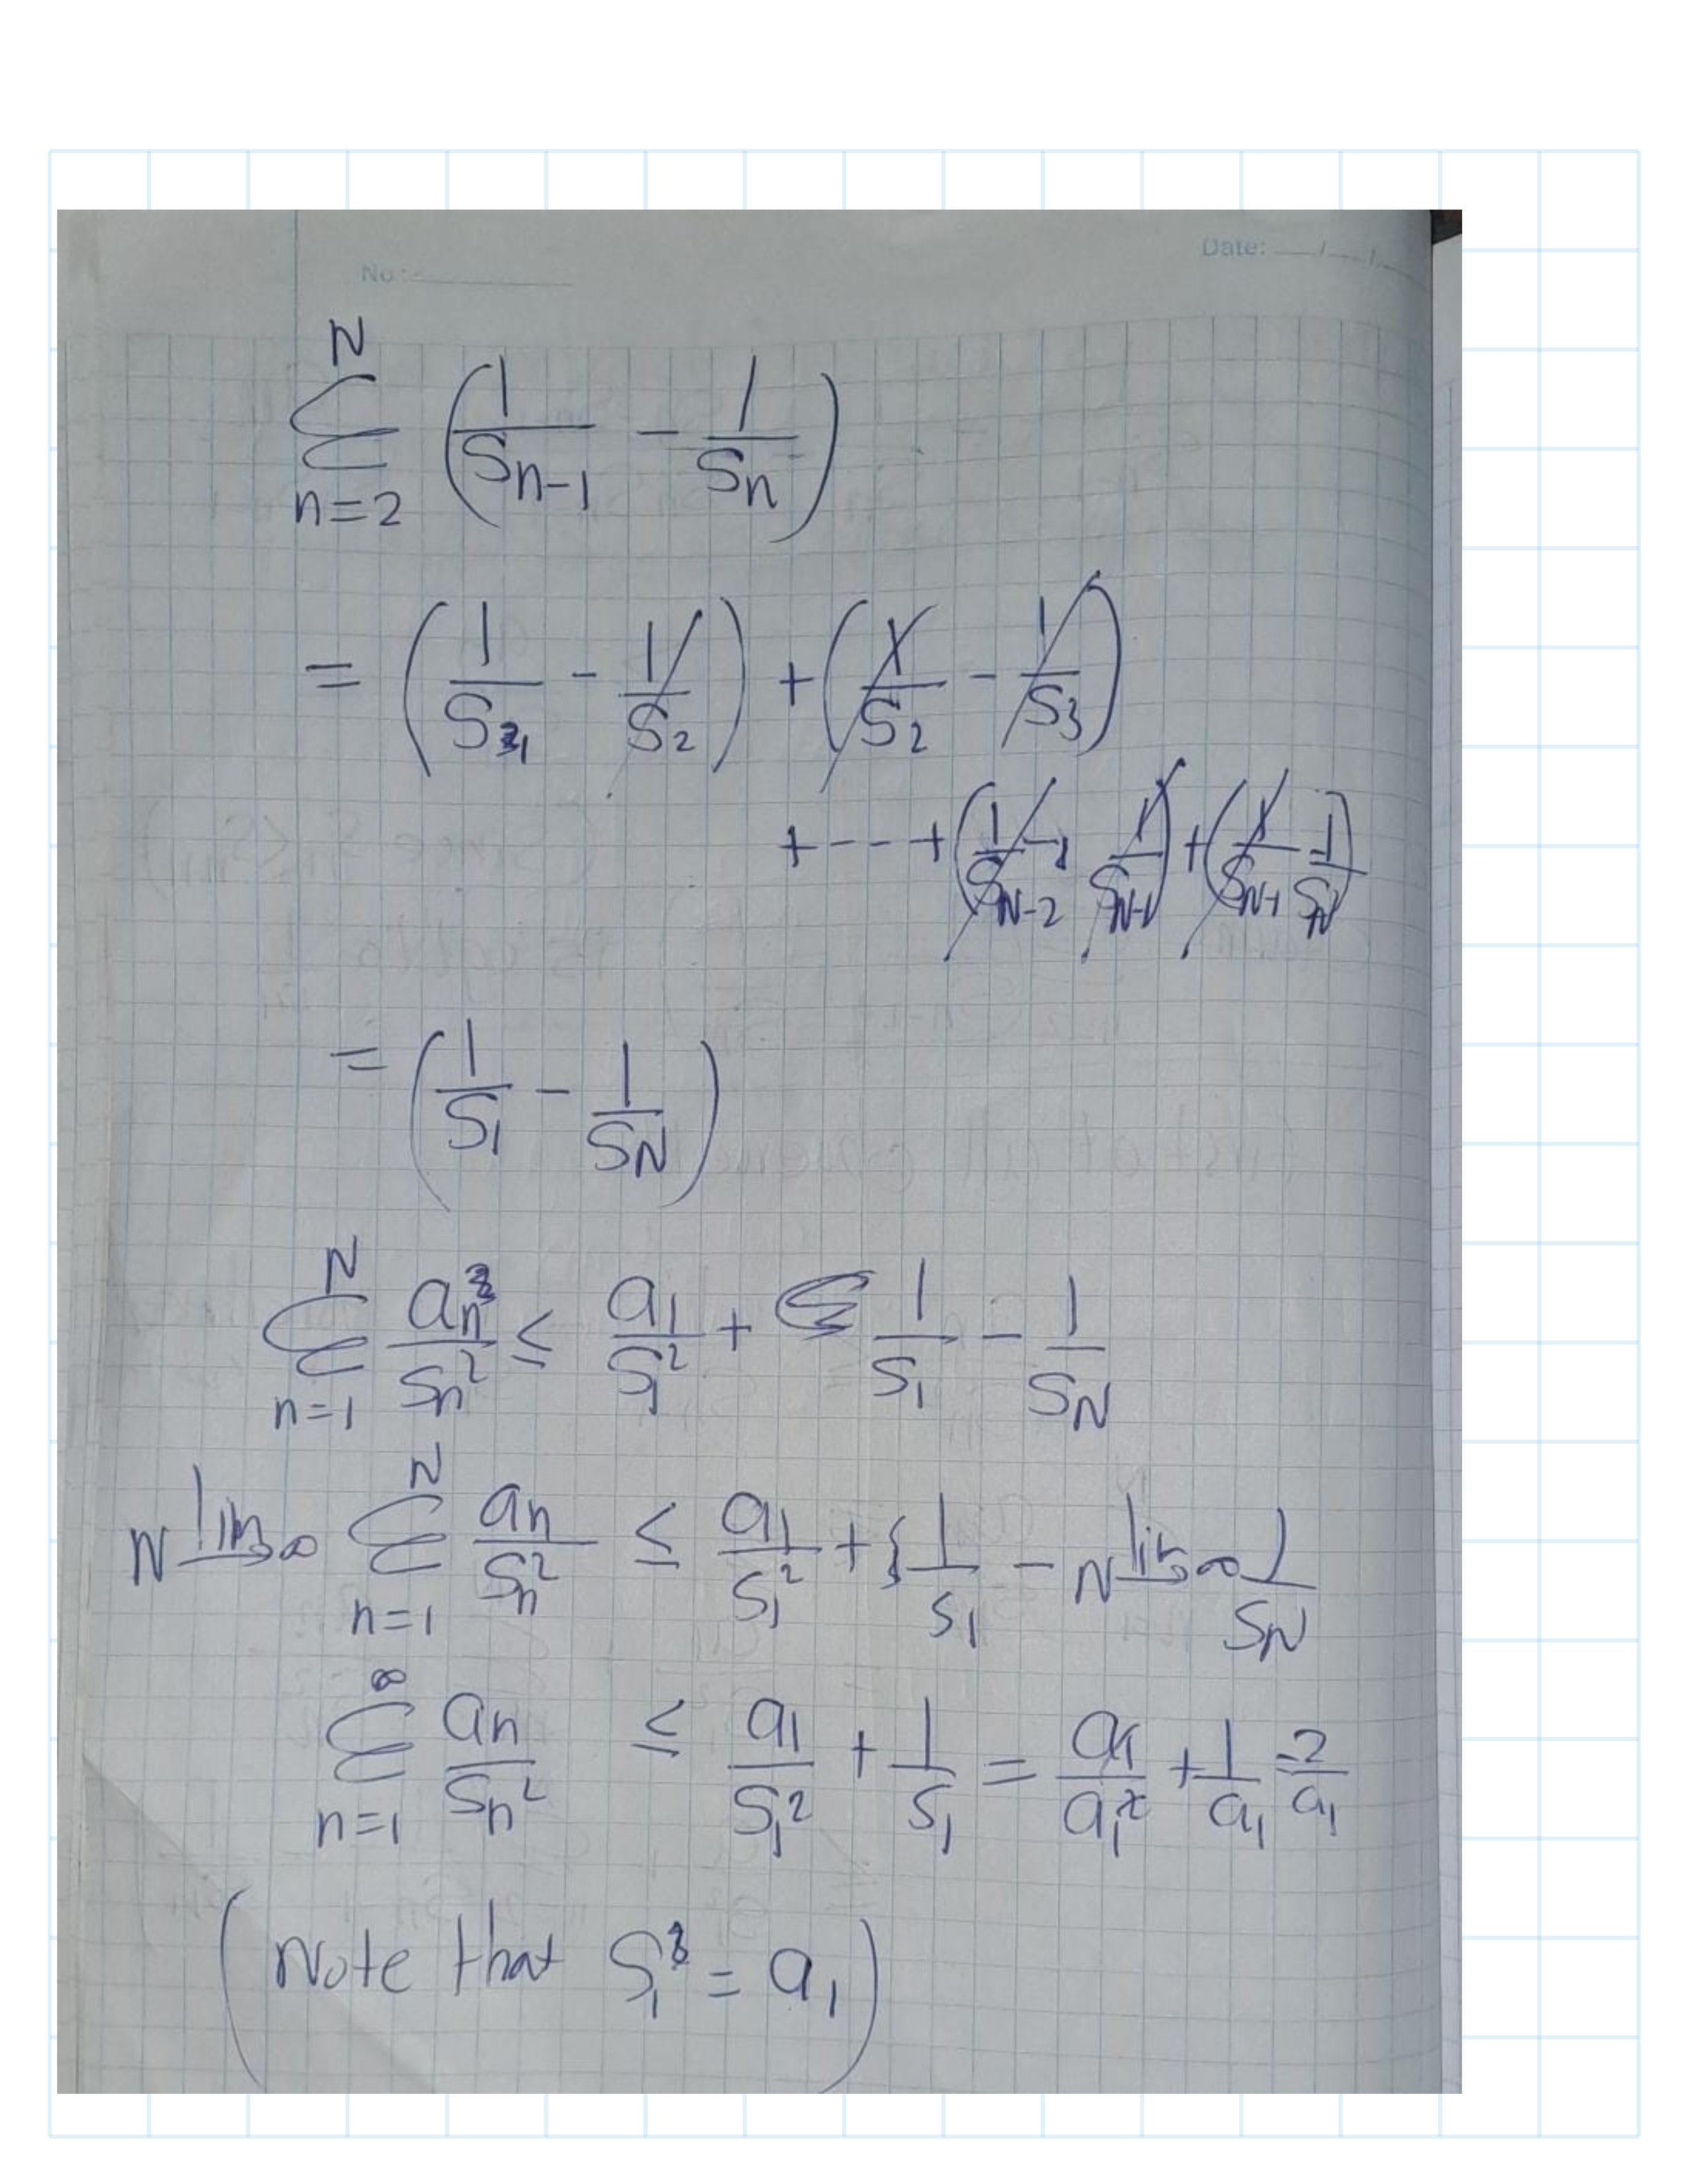 No: Date: __/__/__
\sum_{n=2}^{N} \left( \frac{1}{S_{n-1}} - \frac{1}{S_n} \right)
= \left( \frac{1}{S_1} - \frac{1}{S_2} \right) + \left( \frac{1}{S_2} - \frac{1}{S_3} \right)
+ --- + \left( \frac{1}{S_{N-2}} - \frac{1}{S_{N-1}} \right) + \left( \frac{1}{S_{N-1}} - \frac{1}{S_N} \right)
= \left( \frac{1}{S_1} - \frac{1}{S_N} \right)
\sum_{n=1}^{N} \frac{a_n}{S_n^2} \leq \frac{a_1}{S_1^2} + \frac{1}{S_1} - \frac{1}{S_N}
\lim_{N \to \infty} \sum_{n=1}^{N} \frac{a_n}{S_n^2} \leq \frac{a_1}{S_1^2} + \frac{1}{S_1} - \lim_{N \to \infty} \frac{1}{S_N}
\sum_{n=1}^{\infty} \frac{a_n}{S_n^2} \leq \frac{a_1}{S_1^2} + \frac{1}{S_1} = \frac{a_1}{a_1^2} + \frac{1}{a_1} = \frac{2}{a_1}
(Note that S_1 = a_1)